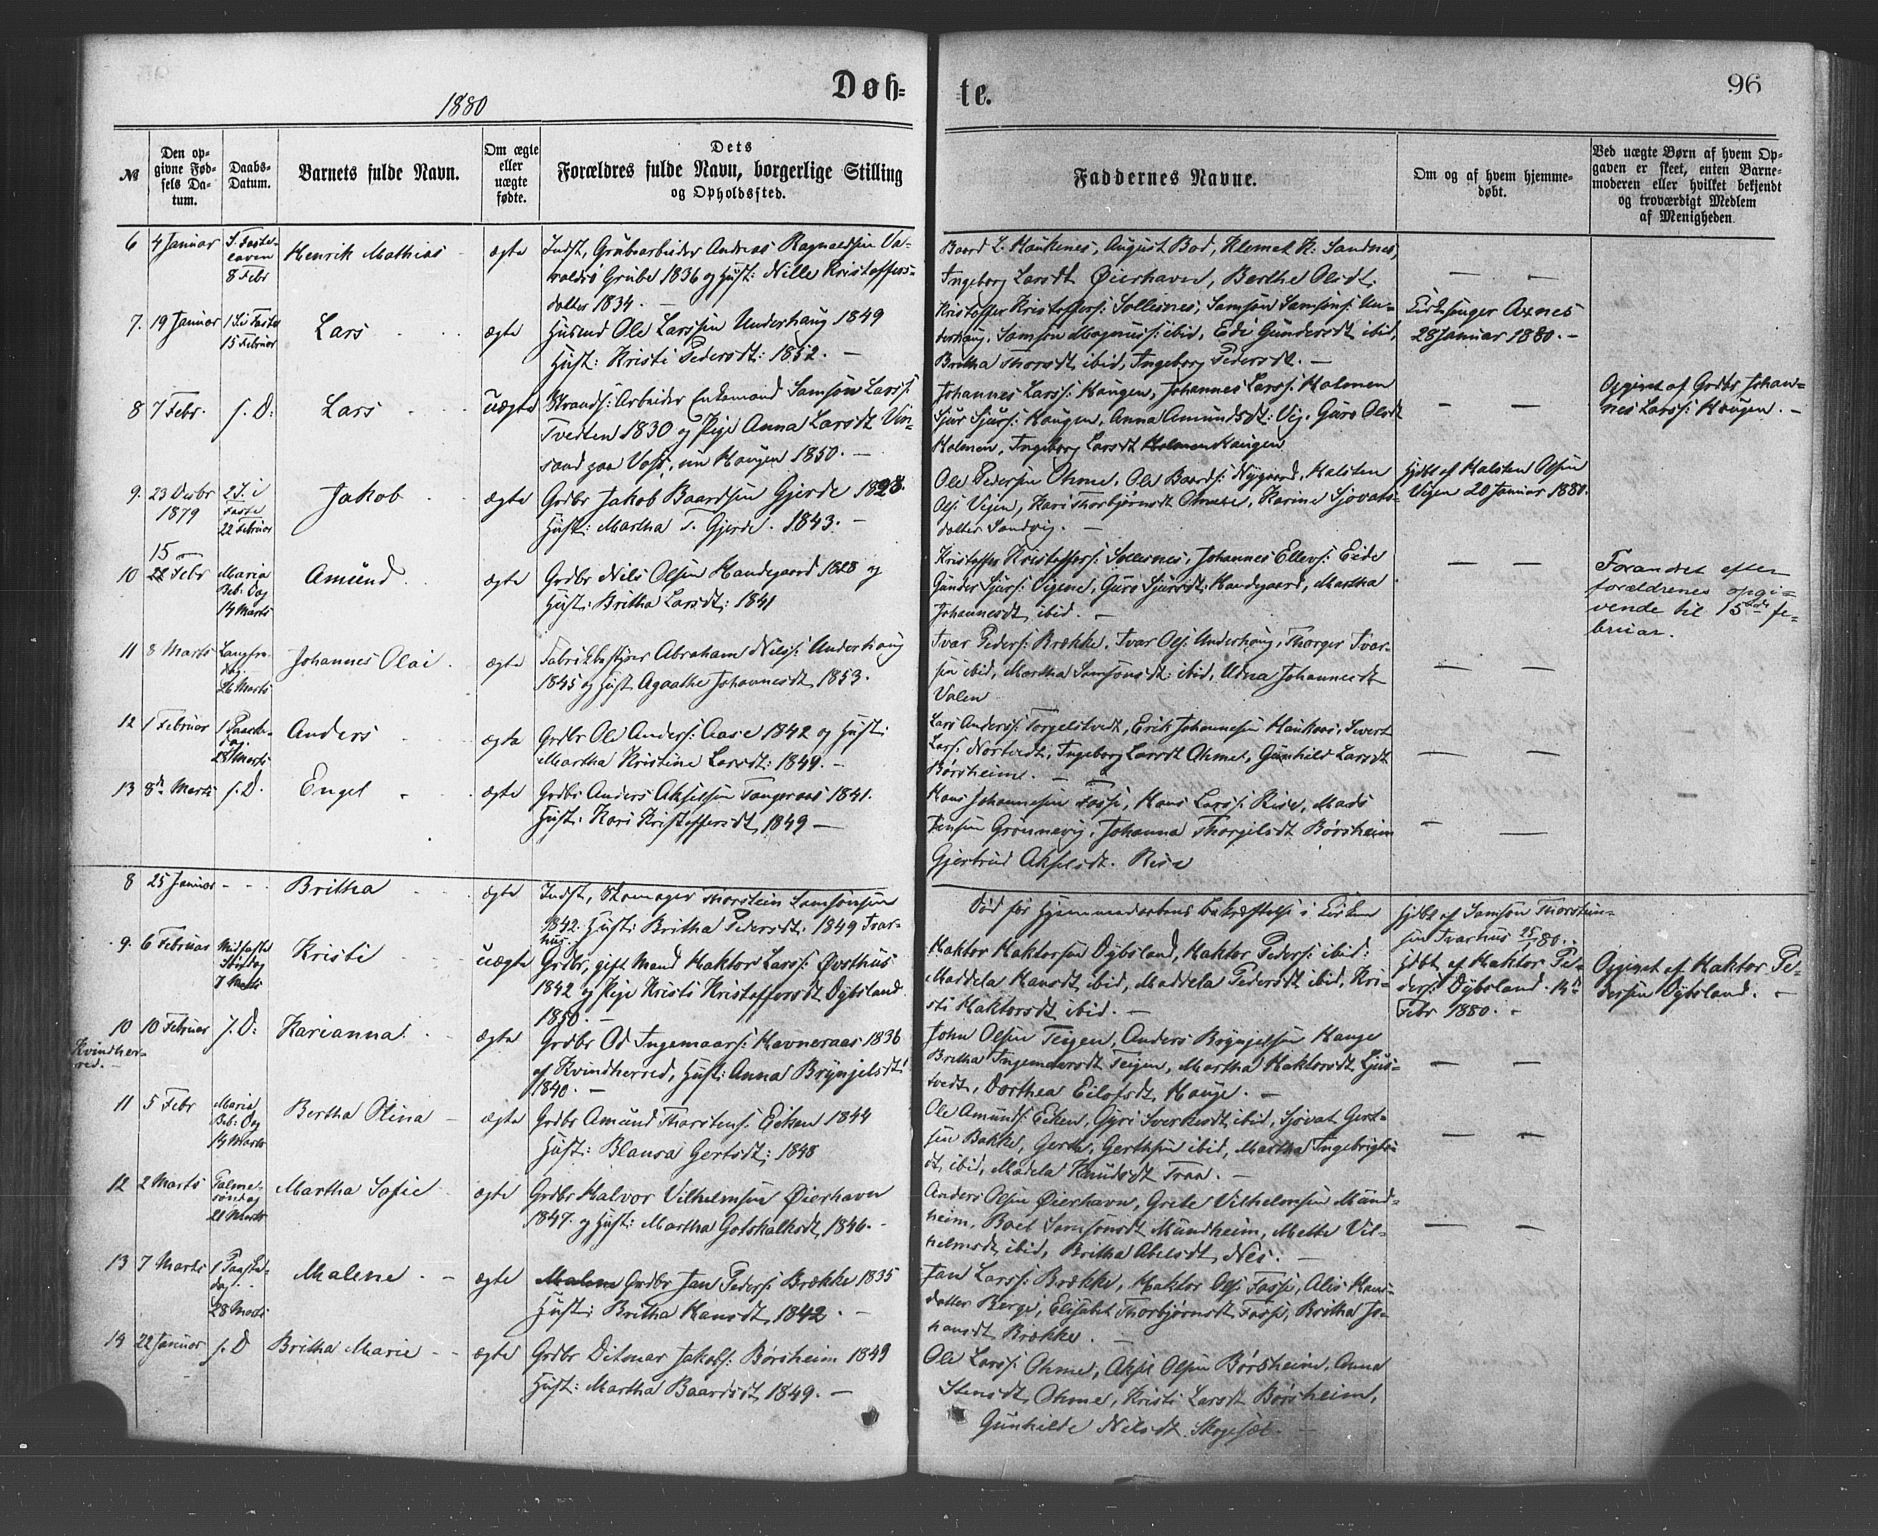 1880
Døb-
te.
96
№
Den op-
givne Fød-
sels Da-
tum.
Daabs-
Datum.
Barnets fulde Navn.
Om ægte
eller
uægte
fødte.
Dets
Forældres fulde Navn, borgerlige Stilling
og Opholdssted.
Faddernes Navne.
Om og af hvem hjemme-
døbt.
Ved uægte Børn af hvem Op-
gaven er skeet, enten Barne-
moderen eller hvilket bekjendt
og troværdigt Medlem
af Menigheden.
6 4 Januar S. Faste-
laven
8 Febr
Henrik Mathias ægte
Indst, Grubearbeider Andreas Ragnaldsen Va-
raldsö Grube 1836 og Hust: Nille Kristoffers-
datter 1834. —
Baard L. Haukenes, August Bod, Klemet K. Sandnes,
Ingeborg Larsdt Øierhavn, Berthe Olsdt.
— —
7. 19 Januar 1 S. i Faste
15 Februar
Lars ægte
Husmd Ole Larssen Underhaug 1849
Hust: Kristi Pedersdt: 1852. —
Kristoffer Kristoffers: Sollesnes, Samson Samsons: Un-
derhaug, Samson Magnuss: ibid, Edi Gundersdt ibid,
Britha Thorsdt ibid, Ingeborg Pedersdt. —
Kirksanger Axnes
28 Januar 1880. —
8 7 Febr. s. D:
Lars uægte
Strands: Arbeider Enkemand Samson Larss:
Tveten 1830 og Pige Anna Larsdt Vin-
sand paa Voss, nu Haugen 1850. —
Johannes Larss: Haugen, Johannes Larss: Holmen
Sjur Sjurs: Haugen, Anna Amundsdt: Vig, Guro Olsdt
Holmen, Ingeborg Larsdt Holmen Haugen
— —
Opgivet af Grdbr Johan-
nes Larss: Haugen. —
9. 23 Decbr
1879
2 S. i
Faste
22 Februar
Jakob ægte
Grdbr Jakob Baardsen Gjerde 1828.
Hust: Martha T. Gjerde. 1843. —
Ole Pedersen Ohme, Ole Baards: Nygaard, Halsten
Ols: Vigen, Kari Thorbjørnsdt Omme, Karine Sjovats-
datter Sandvig. —
hjdbt af Halsten Olsen
Vigen 20 Januar 1880.
15
10 22 Febr Maria
Beb: Dag
14 Marts
Amund ægte
Grdbr Nils Olsen Handegaard 1828 og
Hust: Britha Larsdt: 1841
Kristoffer Kristoffers: Sollesnes, Johannes Ellevs: Eide
Gunder Sjurs: Vigene, Guro Sjursdt: Handegaard, Martha
Johannesdt ibid. —
— —
Forandret efter
forældrenes opgi-
vende til 15de fe-
bruar.
11 8 Marts Langfre-
dag
26 Marts
Johannes Olai ægte
Fabrikbestyrer Abraham Nilss: Underhaug
1845 og Hust Agaathe Johannesdt, 1853.
Ivar Peders: Brække, Ivar Ols: Underhaug, Thorger Ivar-
sen ibid, Martha Samsonsdt: ibid, Anna Johannesdt
Valen
— —
12 1 Februar 1 Paaske-
dag
28 Marts
Anders ægte
Grdbr Ole Anders: Aase 1842 og Hust:
Martha Kristine Larsdt: 1849. —
Lars Anderss: Torgelstvedt, Erik Johannesen Haukaas, Sivert
Larss: Nortvedt, Ingeborg Larsdt Ohmet, Gunhild Larsdt
Børsheim. —
— —
13 8de Marts s. D.
Engel ægte
Grdbr Anders Akselsen Tangeraas 1841.
Hust: Kari Kristoffersdt, 1849 —
Hans Johannesen Fosse, Hans Larss: Rise, Mads
Jensen Grønnevig, Johanna Thorgilsdt Børsheim
Gjertrud Akselsdt. Rise
— —
8 25 Januar - -
Britha ægte
Indst, Skomager Thorstein Samsonsen
1842. Hust: Britha Pedersdt: 1849 Tvar-
hus.
Død før Hjemmedaabens bekræftelse i Kirken
hjdbt af Samson Thorstein-
sen Tvarhus 25/1 80.
9. 6 Februar Midfaste
Søndag
7 Marts
Kristi uægte
Grdbr, gift Mand Haktor Larss: Øvsthus
1842 og Pige Kristi Kristoffersdt Dybsland
1850. —
Haktor Haktorsen Dybsland, Haktor Peders: ibid:
Maddela Hansdt, ibid, Maddela Pedersdt ibid, Kri-
sti Haktorsdt ibid. —
hjdbt af Haktor Pe-
ders: Dybsland. 14de
Febr 1880.
Opgivet af Haktor Pe-
dersen Dybsland. —
10 10 Februar s. D:
Kvindher-
red. —
Karianna ægte
Grdbr Od Ingemaars: Havneraas 1836
af Kvindherred, Hust: Anna Brynjelsdt:
1840. —
John Olsen Teigen, Anders Brynjelsen Hauge
Britha Ingemarsdt Teigen, Martha Haktorsdt Ljus-
tvedt, Dorthea Eilofsdt, Hauge. —
— —
11 5 Febr Maria
Beb: Dag
14 Marts
Bertha Olina — ægte
Grdbr Amund Thorstens: Eiken 1844
Hust: Blansa Gertsdt; 1848
Ole Amunds: Eiken, Gyri Sverkesdt, ibid, Sjovat Gert-
sen Bakke, Gerthe, Gerthsen ibid, Martha Ingebrigts-
dt, ibid, Madela Knudsdt Traa. —
— —
12 2 Marts Palme-
søndag
21 Marts
Martha Sofie ægte
Grdbr Halvor Vilhelmsen Øierhavn
1847. og Hust: Martha Gotskalksdt, 1846. —
Anders Olsen Øierhavn, Grete Vilhelmsen Mund-
heim, Boel Samsonsdt Mundheim, Mette Vil-
helmsdt, ibid, Britha Abelsdt, Nes. —
— —
13 7 Marts 1 Paaske-
dag
28 Marts
Malene — ægte
Malene Grdbr Jan Peders: Brække 1835
Hust: Britha Hansdt, 1842. —
Jan Larss: Brække, Haktor Ols: Fosse, Alis Hans-
datter Berge, Elisabet Thorbjørnsdt Fosse, Britha Jo-
hansdt, Brække. —
— —
14 22 Januar s. D
Britha Marie — ægte
Grdbr Ditmar Jakobs: Børsheim 1849
Hust: Martha Baardsdt, 1849. —
Ole Larss: Ohme, Aksel Olsen Børsheim, Anna
Stensdt, Ohme, Kristi Larsdt Børsheim,
Gunhilde Nilsdt. Skogesæl. —